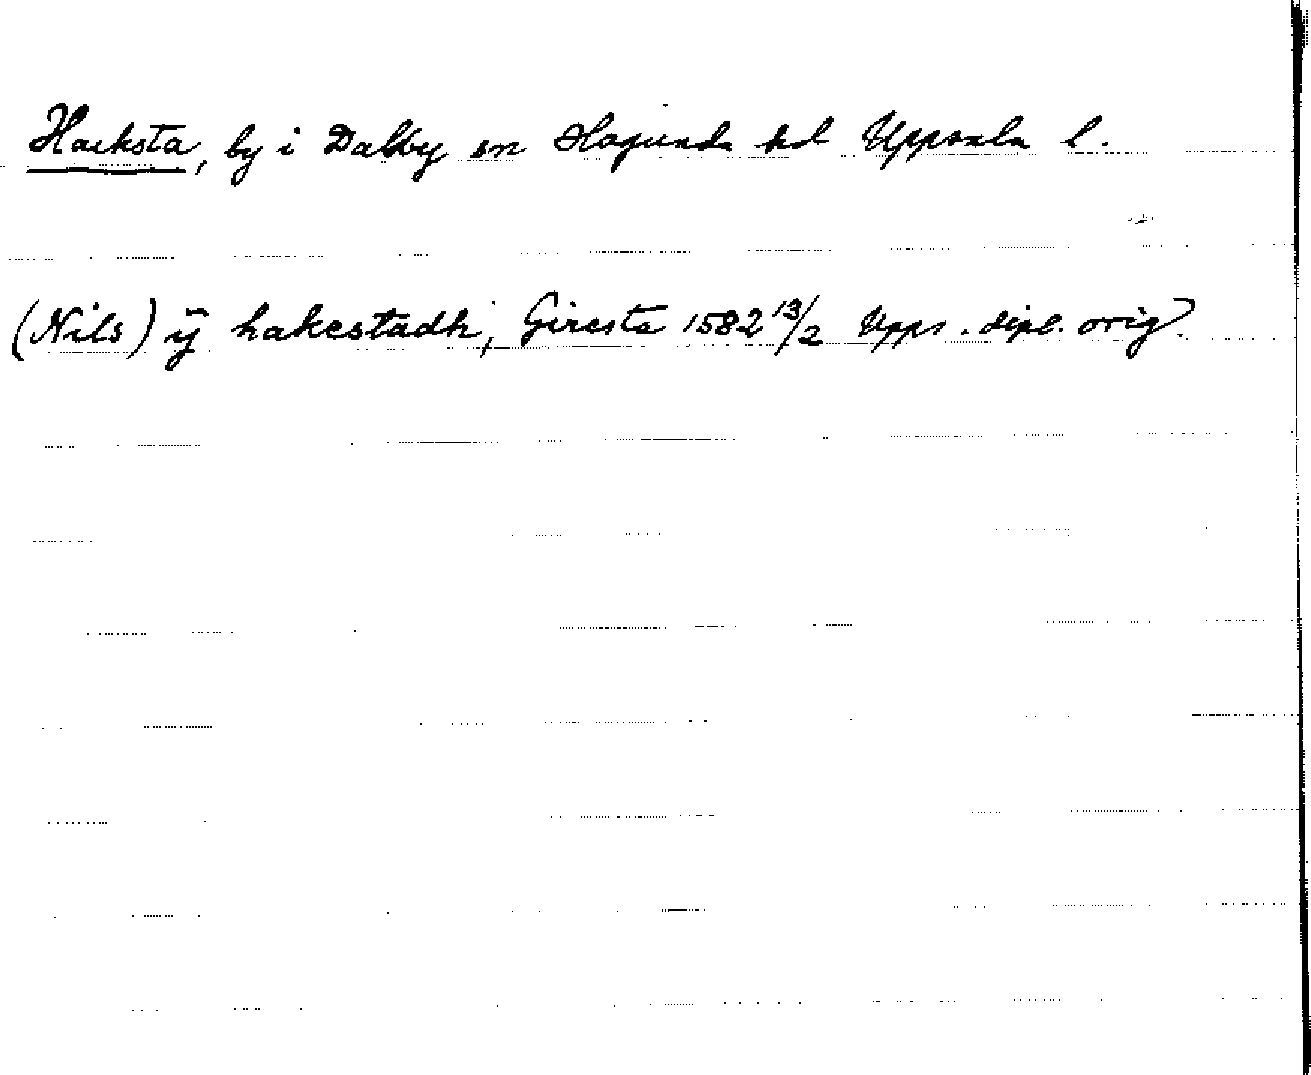 Hacksta, by i Dalby sn Hagunda hd Uppsala l.
(Nils) ÿ hakestadh, Giresta 1582 13/2 Upps. dipl. orig.